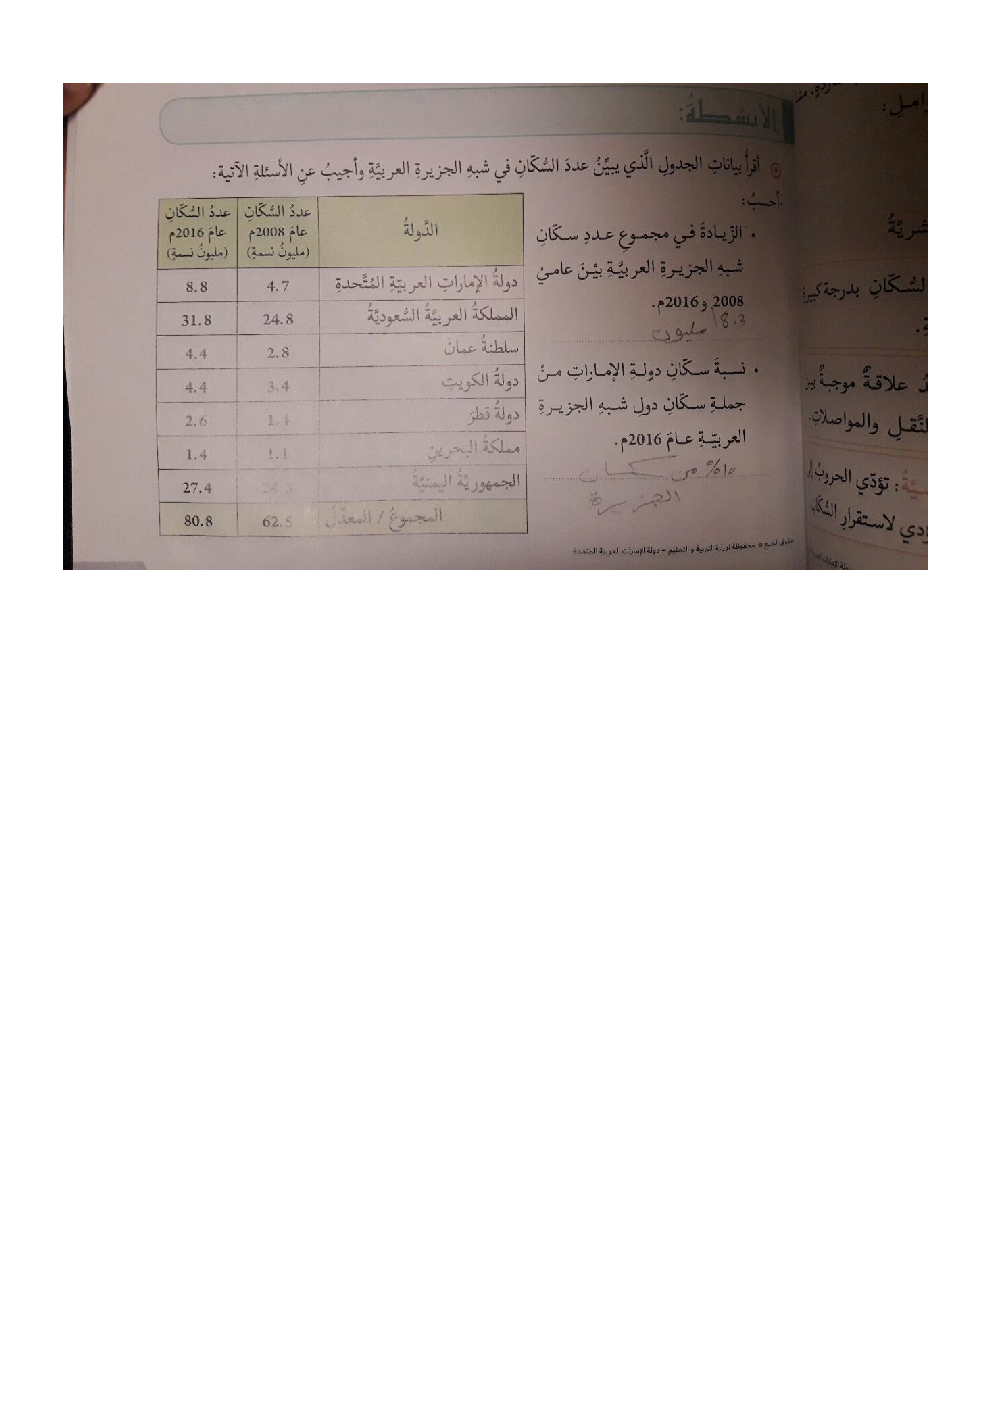 الأنشطةُ:
أقرأُ بياناتِ الجدولِ الَّذي يبيِّنُ عددَ السُّكّانِ في شبهِ الجزيرةِ العربيَّةِ وأجيبُ عنِ الأسئلةِ الآتية:
أحسبُ:
• الزّيادةَ في مجموعِ عددِ سكّانِ
شبهِ الجزيرةِ العربيَّةِ بيْنَ عاميْ
2008 و2016م.
18.3 مليون
• نسبةَ سكّانِ دولةِ الإماراتِ منْ
جملةِ سكّانِ دولِ شبهِ الجزيرةِ
العربيّةِ عامَ 2016م.
10% من سكان
الجزيرة
الدَّولةُ عددُ السُّكّانِ عامَ 2008م (مليونُ نسمةٍ) عددُ السُّكّانِ عامَ 2016م (مليونُ نسمةٍ)
دولةُ الإماراتِ العربيّةِ المُتَّحدةِ 4.7 8.8
المملكةُ العربيَّةُ السُّعوديَّةُ 24.8 31.8
سلطنةُ عمانَ 2.8 4.4
دولةُ الكويتِ 3.4 4.4
دولةُ قطرَ 1.4 2.6
مملكةُ البحرينِ 1.1 1.4
الجمهوريَّةُ اليمنيَّةُ 24.3 27.4
المجموعُ / المعدّلُ 62.5 80.8
حقوق الطبع © محفوظة لوزارة التربية والتعليم – دولة الإمارات العربية المتحدة
وامل:
شريَّةُ
السُّكّانِ بدرجة كبيرة
علاقةٌ موجبةٌ بين
النَّقلِ والمواصلاتِ.
: تؤدّي الحروبُ إلى
لاستقرارِ السُّكّانِ